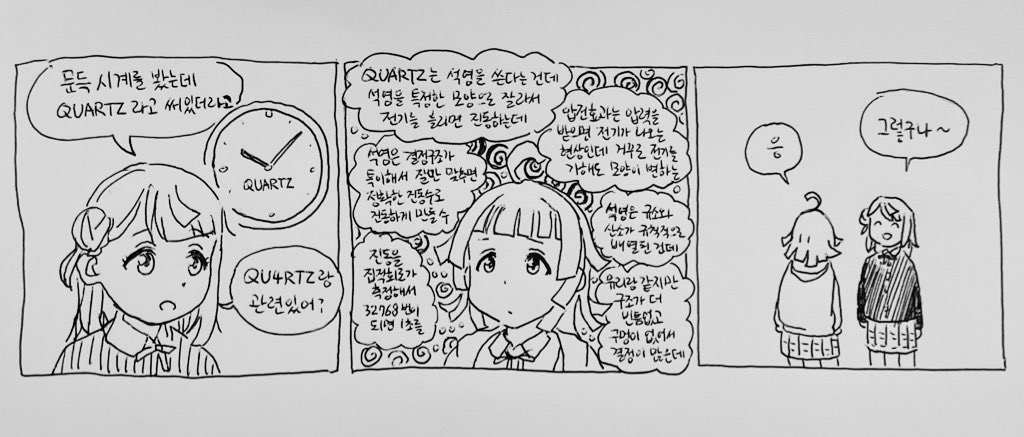 문득 시계를 봤는데
QUARTZ 라고 써있더라고
QUARTZ
QU4RTZ랑
관련있어?
QUARTZ는 석영을 쓴다는 건데
석영을 특정한 모양으로 잘라서
전기를 흘리면 진동하는데
압전효과는 압력을
받으면 전기가 나오는
현상인데 거꾸로 전기를
가해도 모양이 변하는
석영은 결정구조가
특이해서 잘만 맞추면
정확한 진동수로
진동하게 만들 수
석영은 규소와
산소가 규칙적으로
배열된 건데
진동을
집적회로가
측정해서
32768번이
되면 1초를
유리랑 같지만
구조가 더
빈틈없고
구멍이 없어서
결정이 많은데
응
그렇구나~